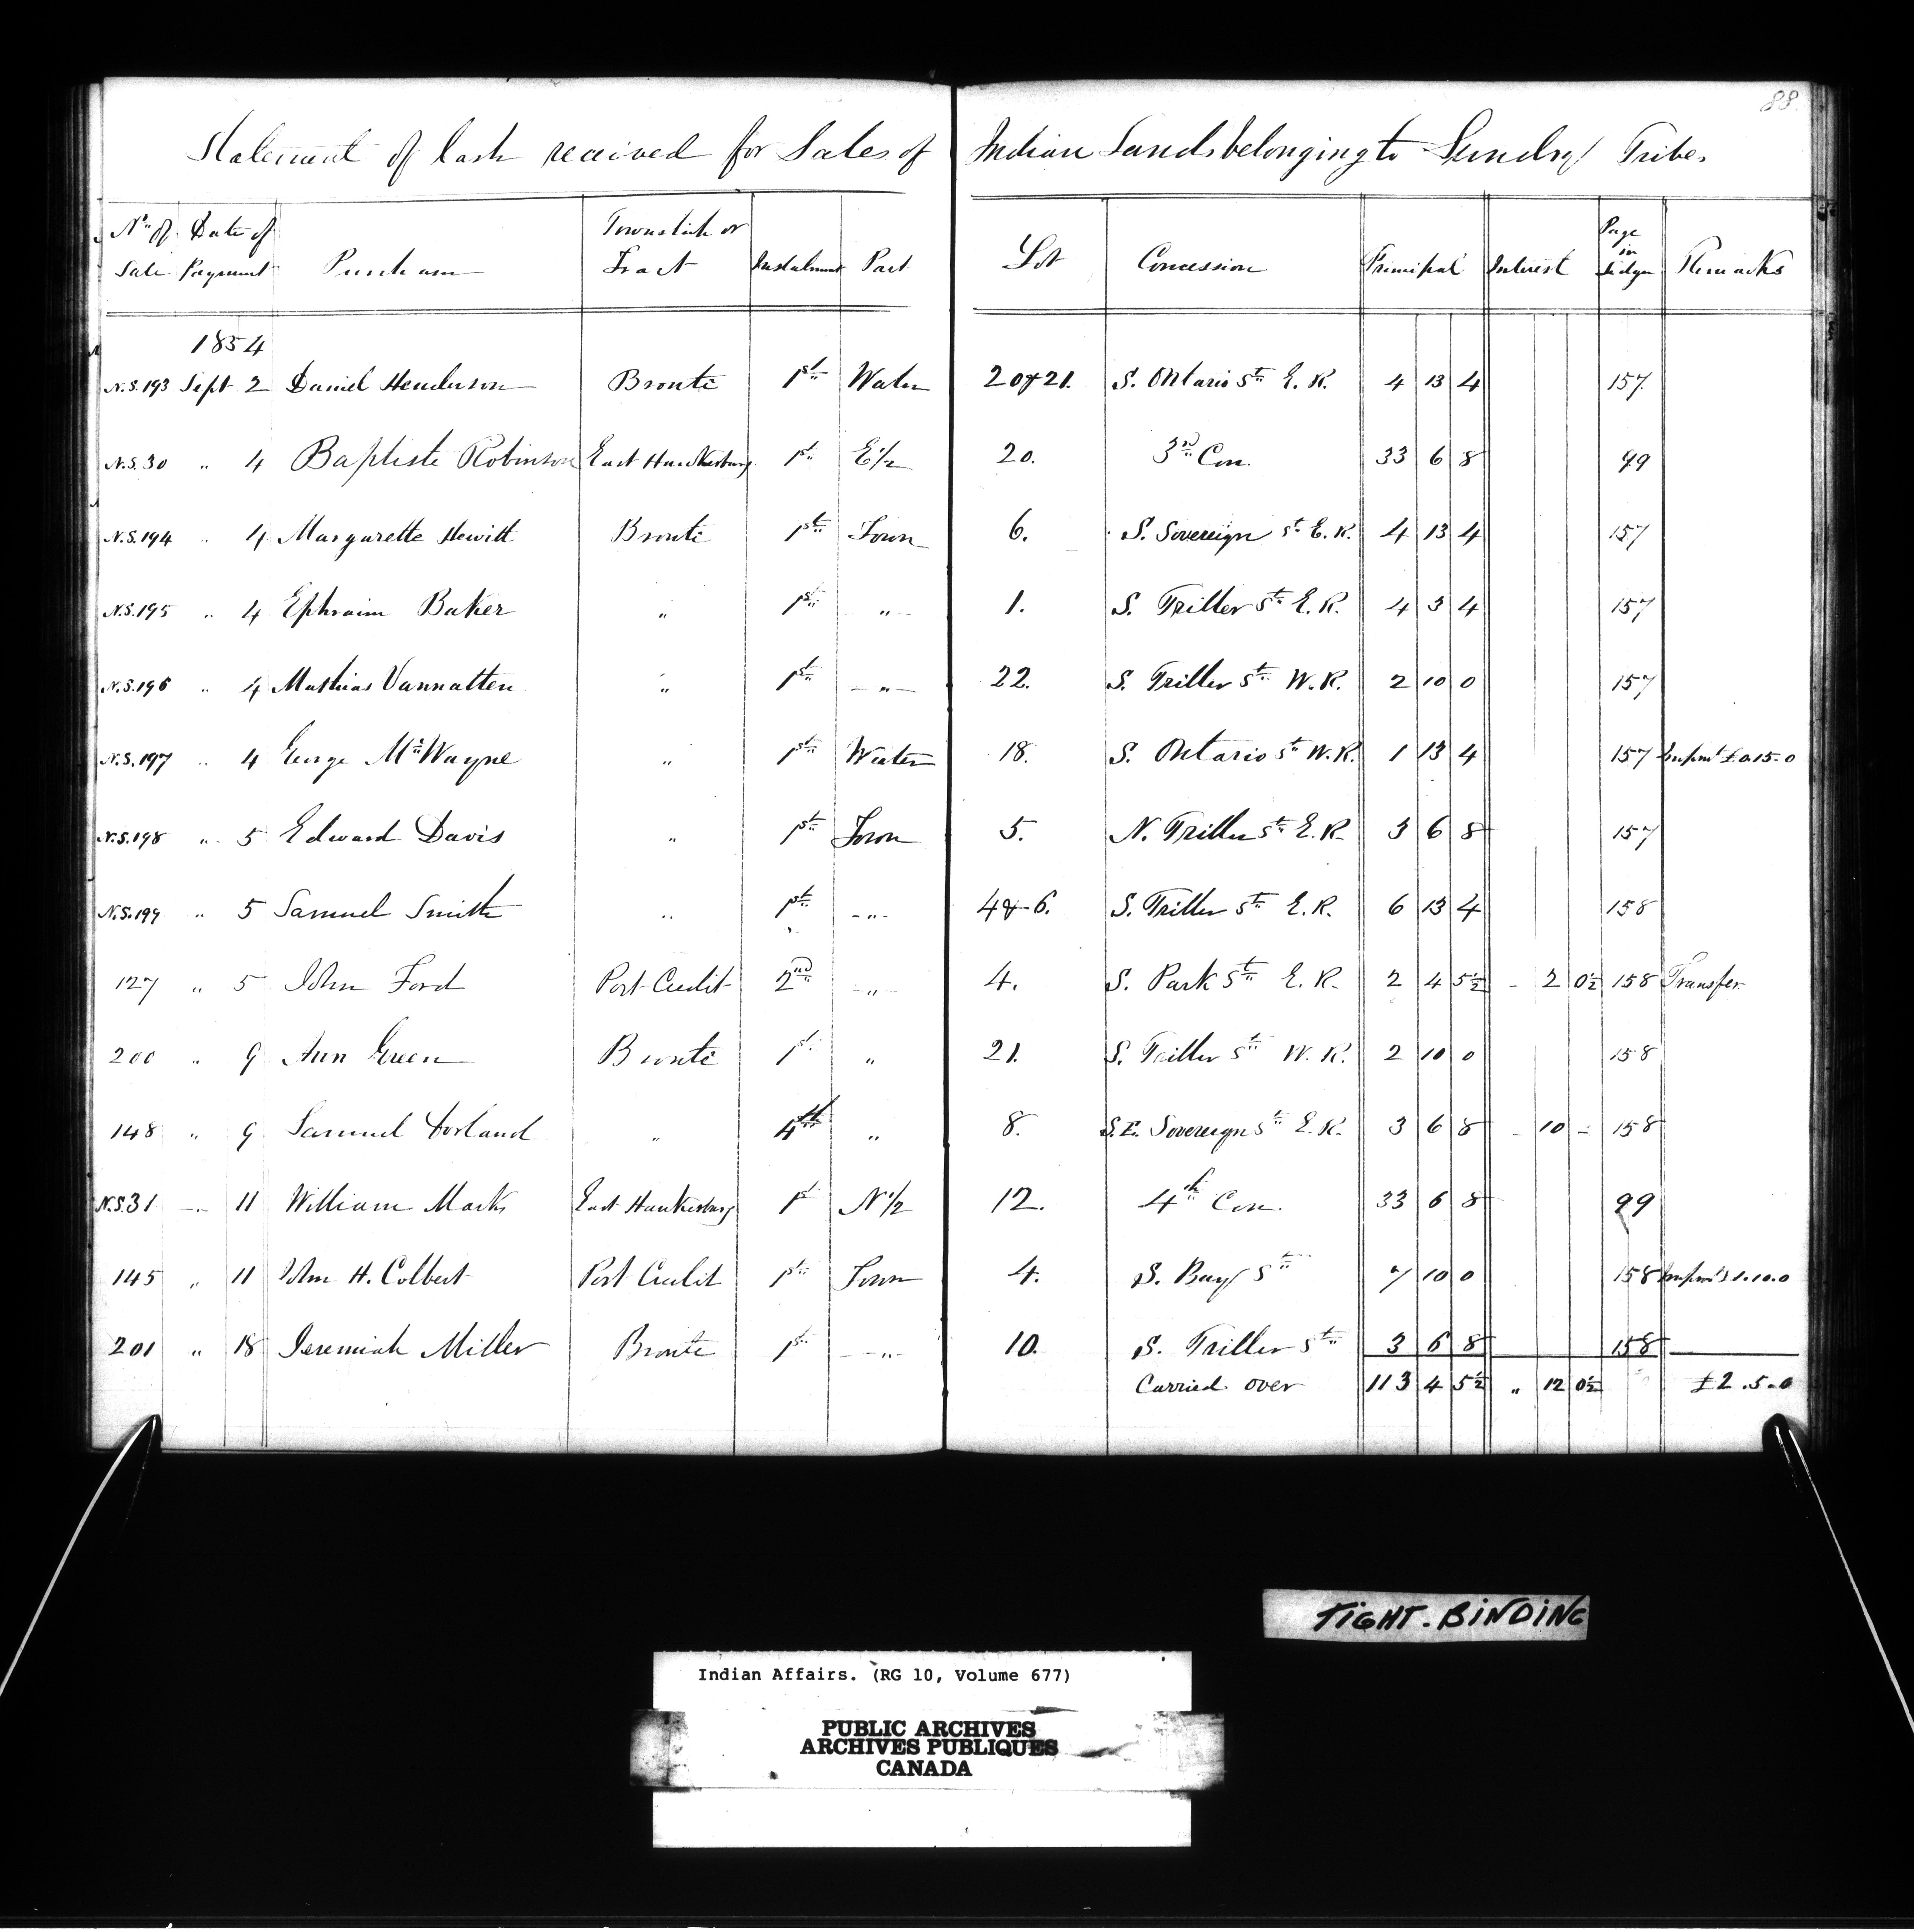 88.
Statement of Cash received for Sales of Indian Lands belonging to Sundry Tribes
No. of Sale Date of Payment Purchaser Township or Tract Instalment Part Lot Concession Principal Interest Page in Ledger Remarks
1854
N.S. 193 Sept 2 Daniel Henderson Bronte 1st Water 20 & 21. S. Ontario St. E. R. 4 13 4 157.
N.S. 30 " 4 Baptiste Robinson East Hawkesbury 1st E 1/2 20. 3rd Con. 33 6 8 99
N.S. 194 " 4 Margarette Hewitt Bronte 1st Town 6. S. Sovereign St E. R. 4 13 4 157
N.S. 195 " 4 Ephraim Baker " 1st " 1. S. Triller St E. R. 4 3 4 157
N.S. 196 " 4 Mathias Vannatten " 1st " 22. S. Triller St W. R. 2 10 0 157
N.S. 197 " 4 George McWayne " 1st Water 18. S. Ontario St W. R. 1 13 4 157 Impmt £0.15.0
N.S. 198 " 5 Edward Davis " 1st Town 5. N. Triller St E. R. 3 6 8 157
N.S. 199 " 5 Samuel Smith " 1st " 4 & 6. S. Triller St E. R. 6 13 4 158
127 " 5 John Ford Port Credit 2nd " 4. S. Park St E. R. 2 4 5½ - 2 0½ 158 Transfer
200 " 9 Ann Green Bronte 1st " 21. S. Triller St W. R. 2 10 0 158
148 " 9 Samuel Dorland " 4th " 8. S.E. Sovereign St E. R. 3 6 8 - 10 - 158
N.S. 31 " 11 William Marks East Hawkesbury 1st N 1/2 12. 4th Con. 33 6 8 99
145 " 11 John H. Colbert Port Credit 1st Town 4. S. Bay St 7 10 0 158 Impmt £1.10.0
201 " 18 Jeremiah Miller Bronte 1st " 10. S. Triller St 3 6 8 158
Carried over 113 4 5½ " 12 0½ £2.5.0
TIGHT-BINDING
Indian Affairs. (RG 10, Volume 677)
PUBLIC ARCHIVES
ARCHIVES PUBLIQUES
CANADA